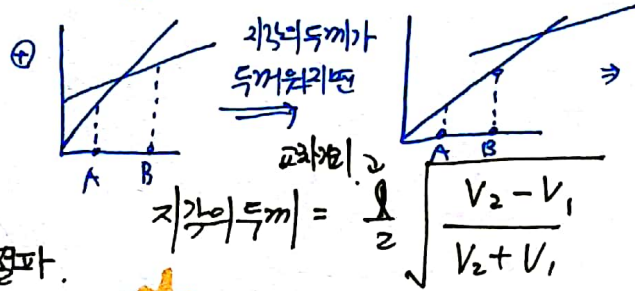 ⊕
지각의 두께가
두꺼워지면
⇒
A B
A B
교차거리
지각의 두께 = l/2 √((V₂ − V₁)/(V₂ + V₁))